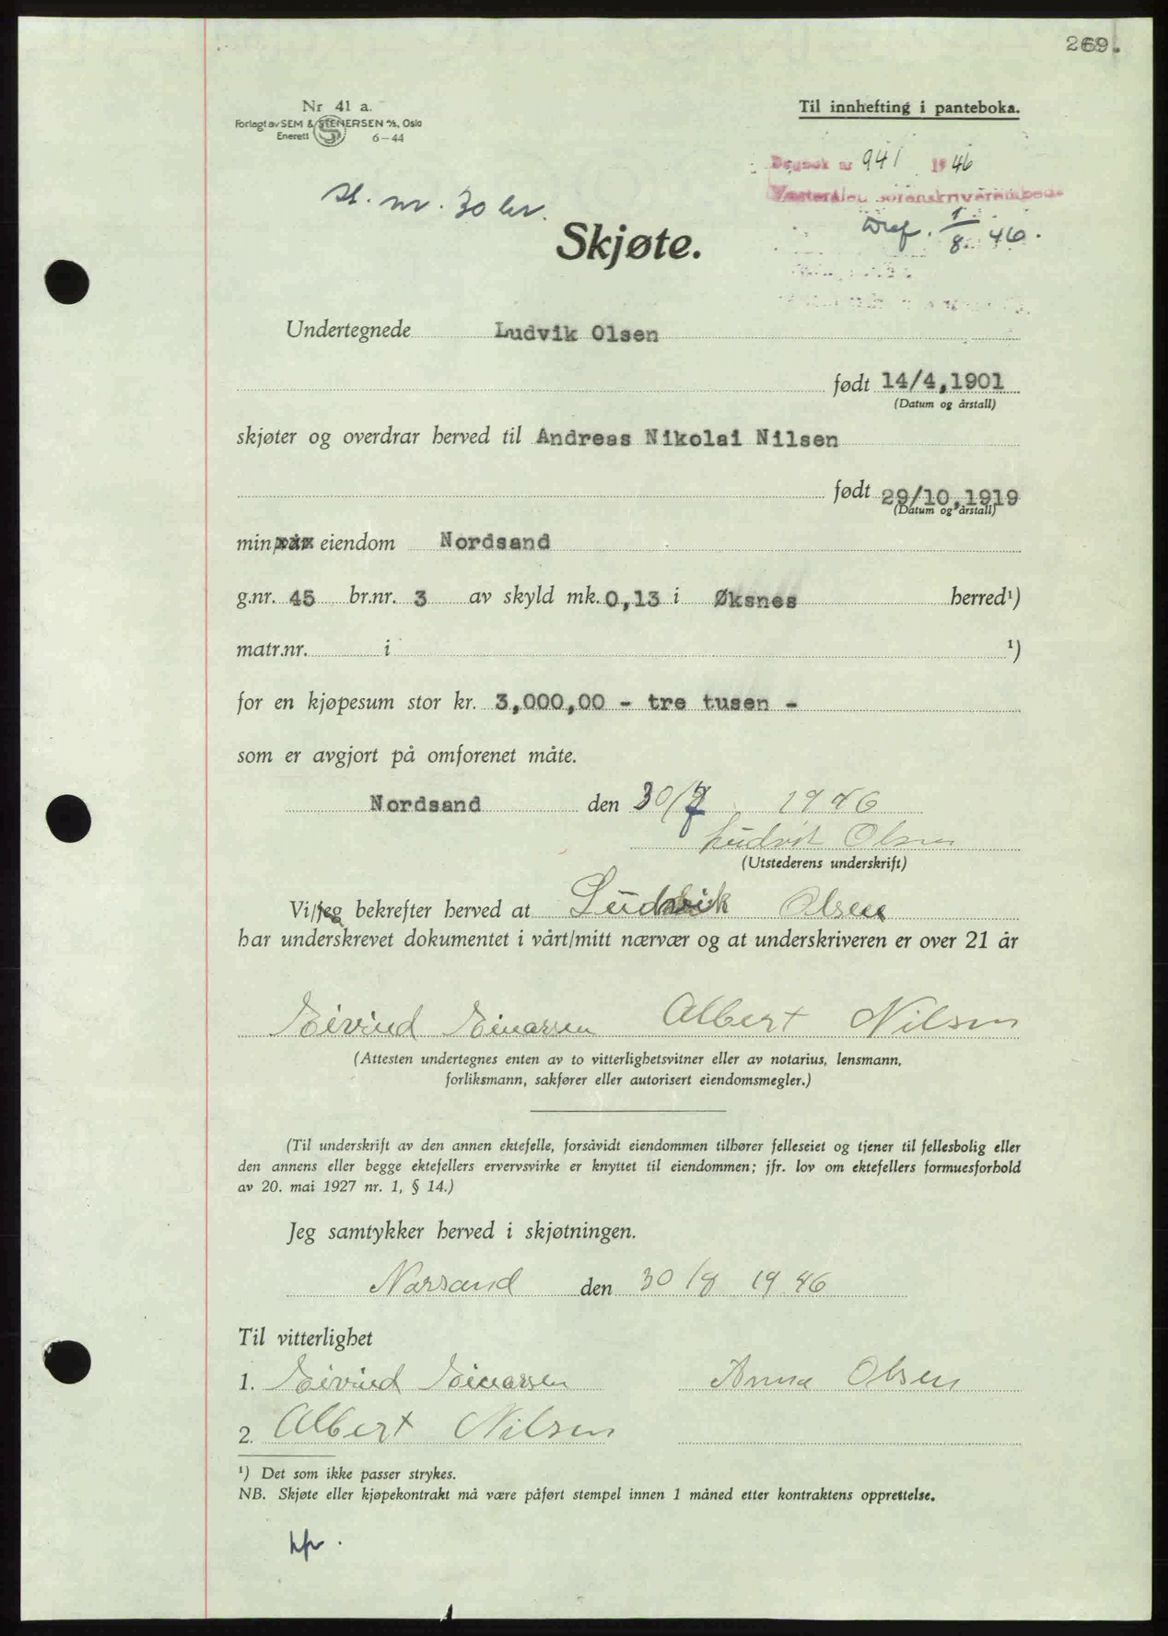 269.
Nr 41 a.
Forlagt av SEM & STENERSEN A/S, Oslo
Enerett 6-44
Til innhefting i panteboka.
Dagbok nr 941 1946
Vesterålen sorenskriverembede
st. mr. 30 kr.
1/8 46.
Skjøte.
Undertegnede Ludvik Olsen
født 14/4,1901
(Datum og årstall)
skjøter og overdrar herved til Andreas Nikolai Nilsen
født 29/10,1919
(Datum og årstall)
min/vår eiendom Nordsand
g.nr. 45 br.nr. 3 av skyld mk. 0,13 i Øksnes herred¹)
matr.nr. i ¹)
for en kjøpesum stor kr. 3,000,00 - tre tusen -
som er avgjort på omforenet måte.
Nordsand den 30/7 1946
Ludvik Olsen
(Utstederens underskrift)
Vi/jeg bekrefter herved at Ludvik Olsen
har underskrevet dokumentet i vårt/mitt nærvær og at underskriveren er over 21 år
Eivind Einarsen Albert Nilsen
(Attesten undertegnes enten av to vitterlighetsvitner eller av notarius, lensmann,
forliksmann, sakfører eller autorisert eiendomsmegler.)
(Til underskrift av den annen ektefelle, forsåvidt eiendommen tilhører felleseiet og tjener til fellesbolig eller
den annens eller begge ektefellers ervervsvirke er knyttet til eiendommen; jfr. lov om ektefellers formuesforhold
av 20. mai 1927 nr. 1, § 14.)
Jeg samtykker herved i skjøtningen.
Norsand den 30/8 1946
Til vitterlighet
1. Eivind Einarsen Anna Olsen
2. Albert Nilsen
¹) Det som ikke passer strykes.
NB. Skjøte eller kjøpekontrakt må være påført stempel innen 1 måned etter kontraktens opprettelse.